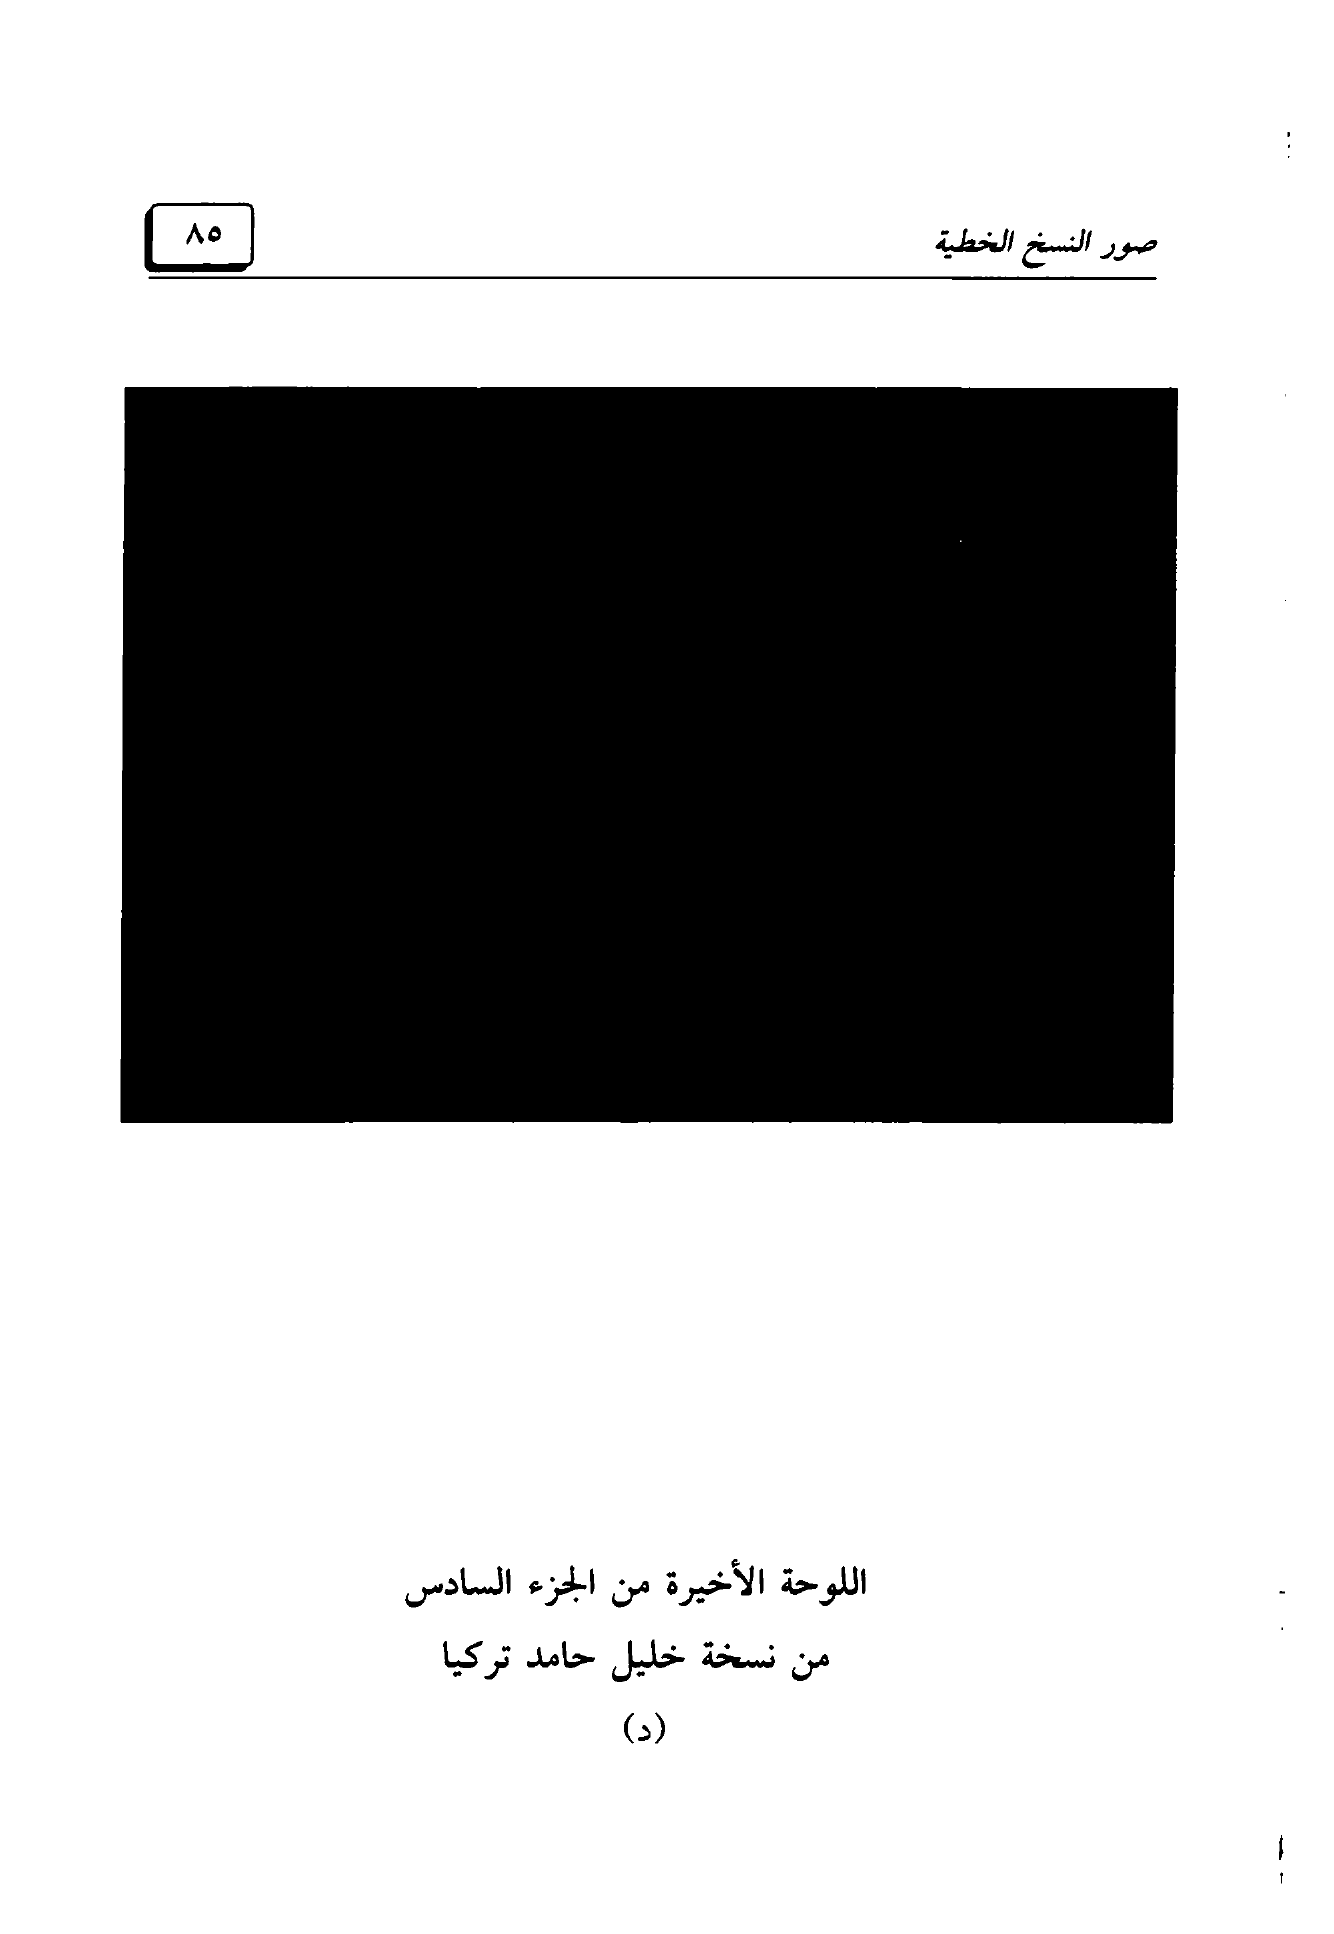 صور النسخ الخطية
٨٥
اللوحة الأخيرة من الجزء السادس
من نسخة خليل حامد تركيا
(د)